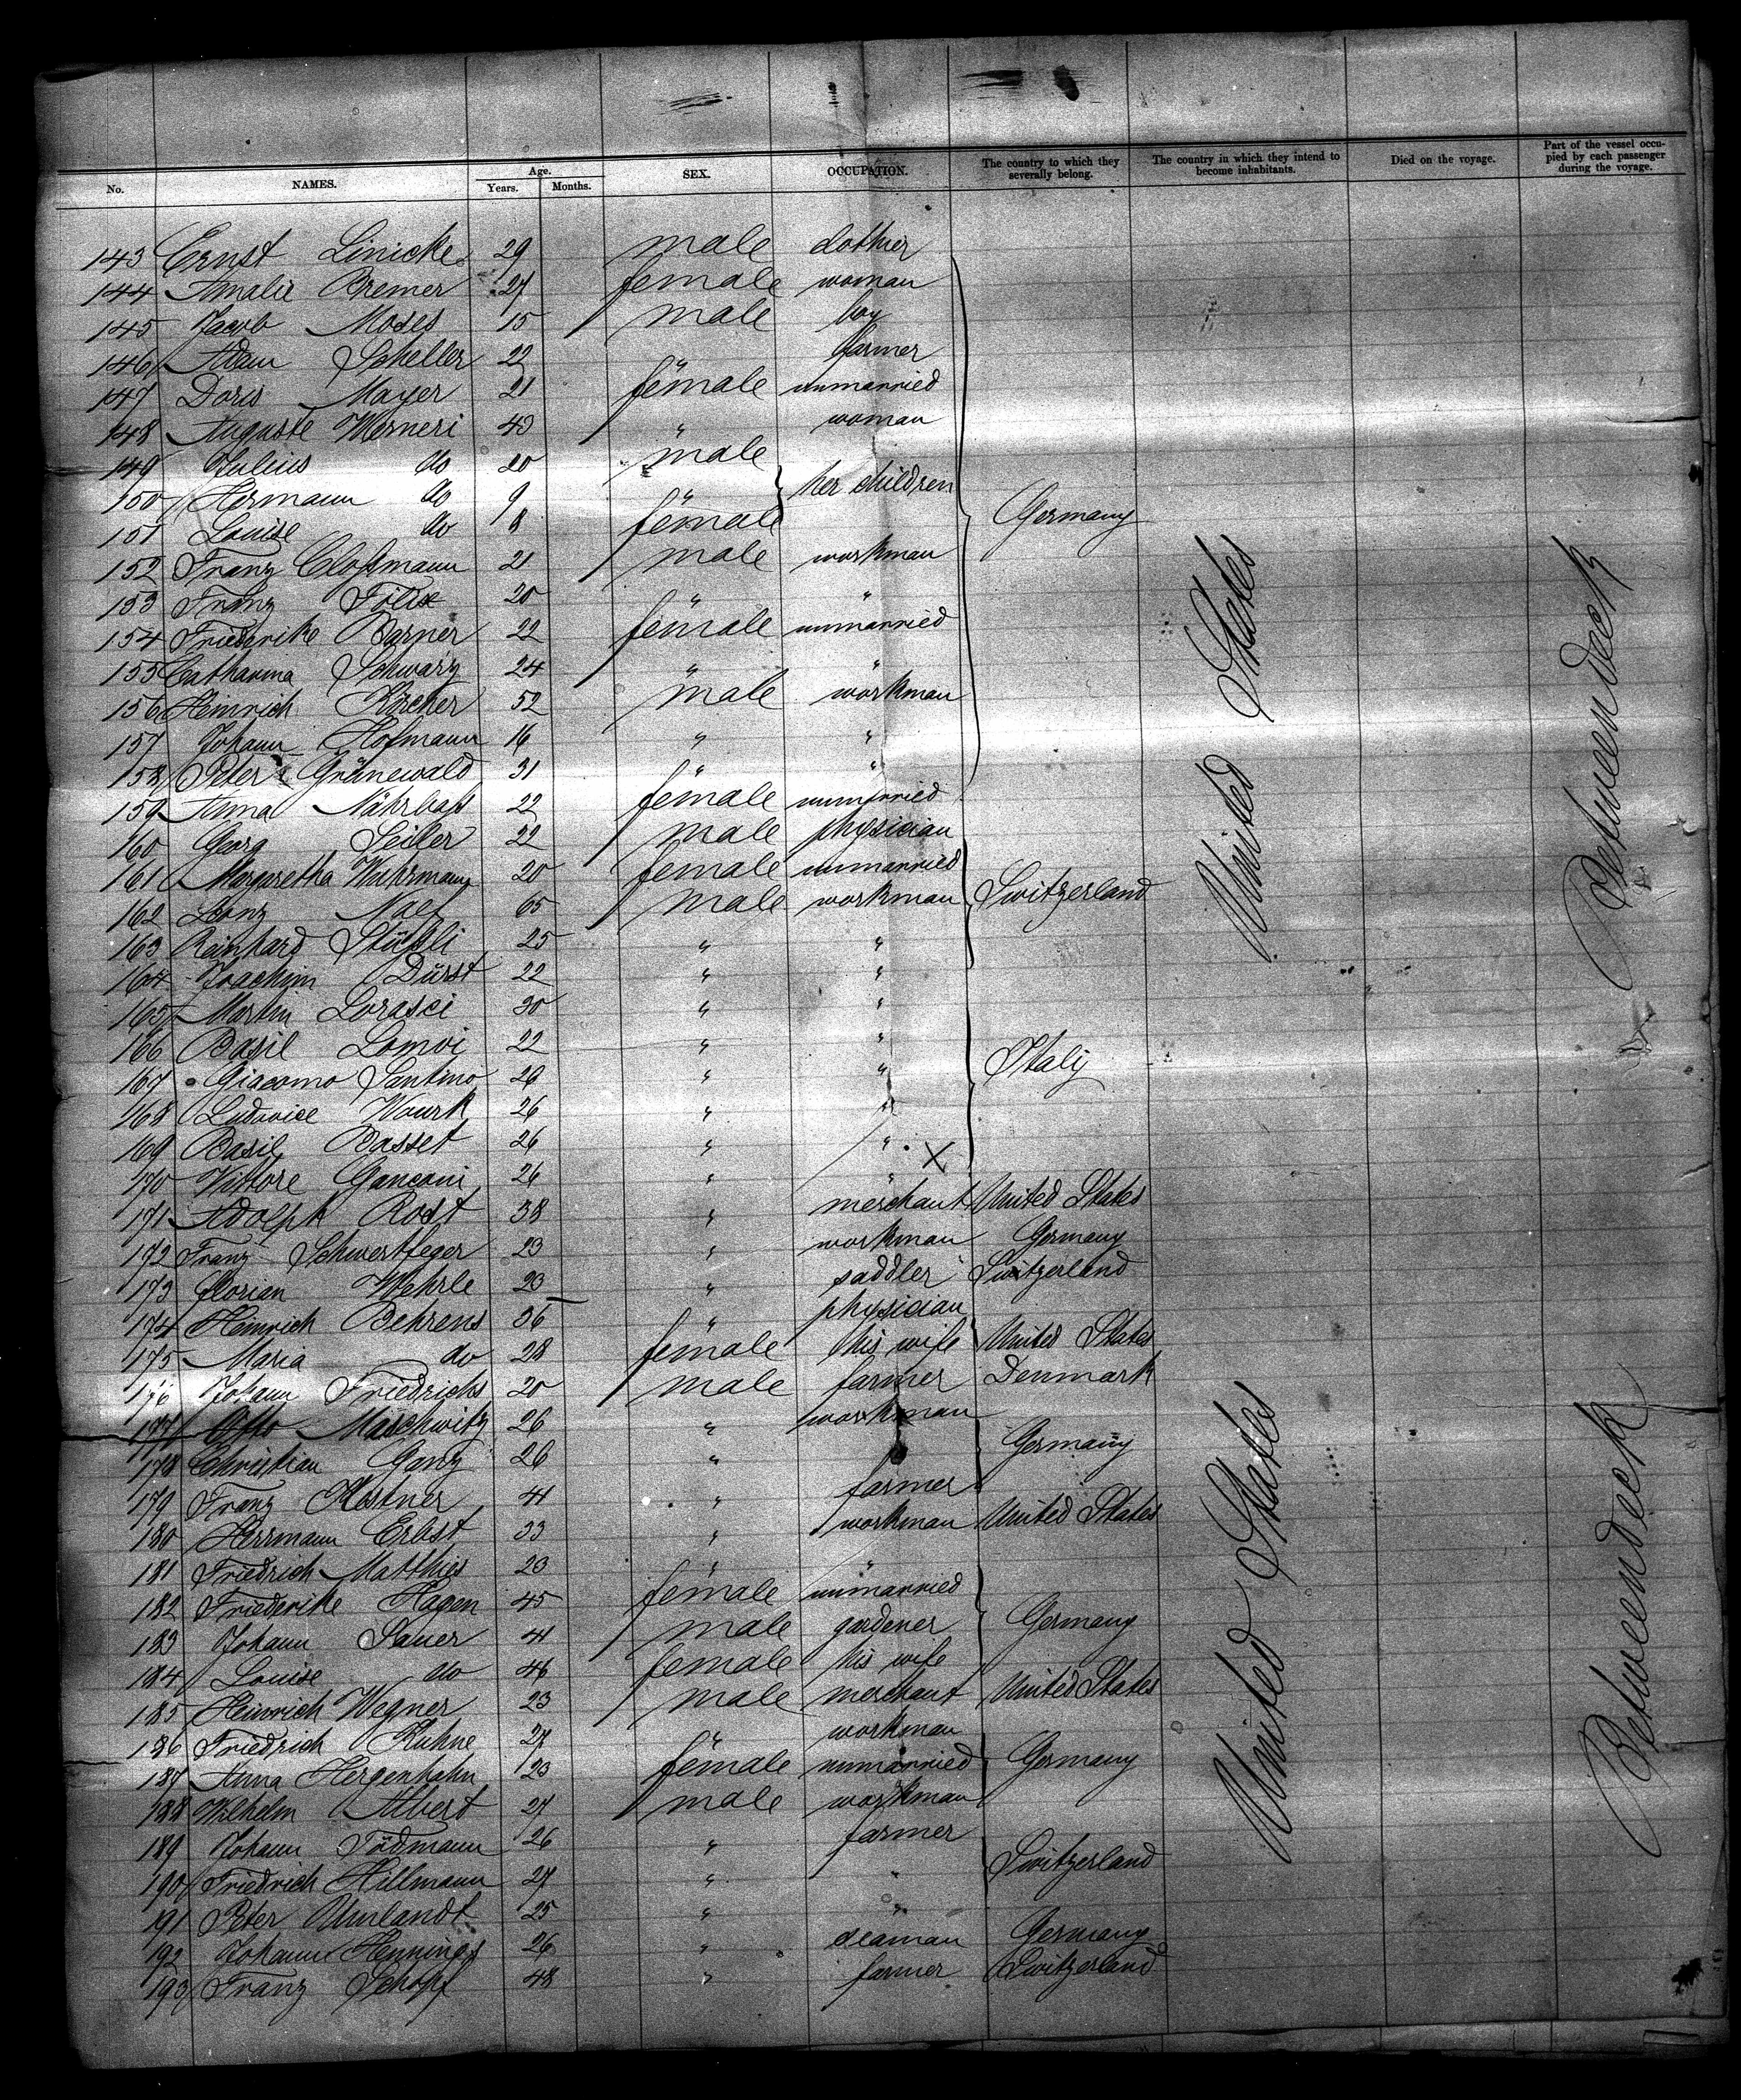 No. NAMES. Age. Years. Months. SEX. OCCUPATION. The country to which they severally belong. The country in which they intend to become inhabitants. Died on the voyage. Part of the vessel occupied by each passenger during the voyage.
143 Ernst Linicke 29 male clothier
144 Amalie Bremer 27 female woman
145 Jacob Moses 15 male boy
146 Adam Scheller 22 " farmer
147 Doris Mayer 21 female unmarried
148 Auguste Werneri 43 " woman
149 Julius do 20 male
150 Hermann do 9 " her children
151 Louise do 8 female Germany
152 Franz Cloßmann 21 male workman
153 Franz Földe 20 " "
154 Friederike Barner 22 female unmarried
155 Catharina Schwarz 24 " "
156 Heinrich Kircher 52 male workman
157 Johann Hofmann 16 " "
158 Peter Grünewald 31 " "
159 Anna Nährbaß 22 female unmarried
160 Georg Seiler 22 male physician
161 Margaretha Wuhrmann 20 female unmarried
162 Leonz Naef 65 male workman Switzerland
163 Reinhard Stüßli 25 " "
164 Joachim Dürst 22 " "
165 Martin Lorasci 30 " "
166 Basil Lomoi 22 " "
167 Giacomo Santino 29 " " Italy
168 Ludovice Wourk 26 " "
169 Basil Basset 26 " "
170 Vittore Ganconi 26 " "
171 Adolph Rost 38 " merchant United States
172 Franz Schwertfeger 23 " workman Germany
173 Florian Wehrle 23 " saddler Switzerland
174 Heinrich Behrens 36 " physician
175 Maria do 28 female his wife United States
176 Johann Friedrichs 20 male farmer Denmark
177 Otto Maschwitz 26 " workman
178 Christian Ganz 26 " Germany
179 Franz Kostner 41 " farmer
180 Herrmann Erbst 33 " workman United States
181 Friedrich Matthies 23 " "
182 Friederike Hagen 45 female unmarried
183 Johann Sauer 41 male gardener Germany
184 Louise do 46 female his wife
185 Heinrich Wegner 23 male merchant United States
186 Friedrich Kuhne 27 " workman
187 Anna Hergenhahn 23 female unmarried Germany
188 Wilhelm Albert 27 male workman
189 Johann Tödmann 26 " farmer
190 Friedrich Hillmann 27 " " Switzerland
191 Peter Umlandt 25 " "
192 Johann Hennings 26 " seaman Germany
193 Franz Schopf 48 " farmer Switzerland
United States
Betweendeck
United States
Betweendeck